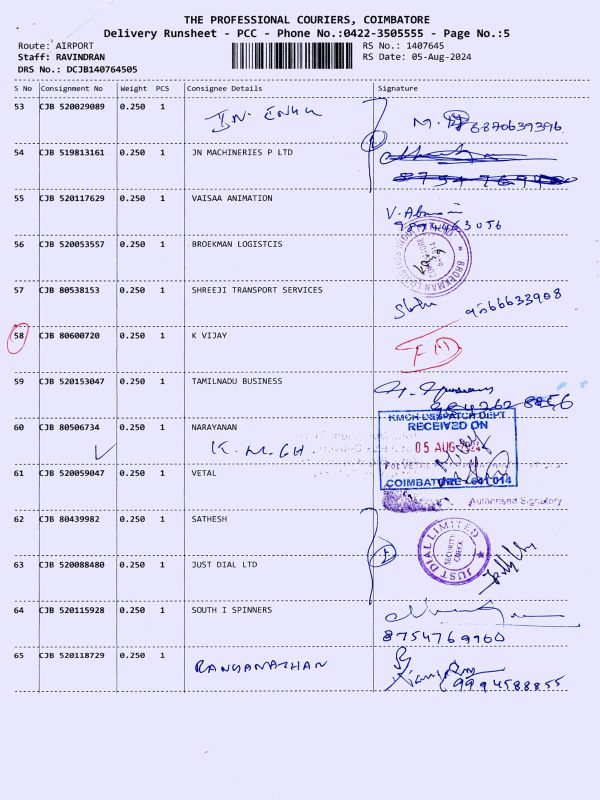 THE PROFESSIONAL COURIERS, COIMBATORE
Delivery Runsheet - PCC - Phone No.:0422-3505555 - Page No.:5
Route: AIRPORT RS No.: 1407645
Staff: RAVINDRAN RS Date: 05-Aug-2024
DRS No.: DCJB140764505
S No Consignment No Weight PCS Consignee Details Signature
53 CJB 520029089 0.250 1
M. 6870639396
54 CJB 519813161 0.250 1 JN MACHINERIES P LTD
55 CJB 520117629 0.250 1 VAISAA ANIMATION
56 CJB 520053557 0.250 1 BROEKMAN LOGISTCIS
BROEKMAN LOGISTICS
57 CJB 80538153 0.250 1 SHREEJI TRANSPORT SERVICES
9566633908
58 CJB 80600720 0.250 1 K VIJAY
59 CJB 520153047 0.250 1 TAMILNADU BUSINESS
60 CJB 80506734 0.250 1 NARAYANAN
K.M.CH.
KMCH DESPATCH DEPT
RECEIVED ON
05 AUG 2024
For VETAL
COIMBATORE - 641 014
61 CJB 520059047 0.250 1 VETAL
Authorised Signatory
62 CJB 80439982 0.250 1 SATHESH
JUST DIAL LIMITED
SECURITY CHECK
63 CJB 520088480 0.250 1 JUST DIAL LTD
64 CJB 520115928 0.250 1 SOUTH I SPINNERS
8754769900
65 CJB 520118729 0.250 1 RANGANATHAN
9994588855